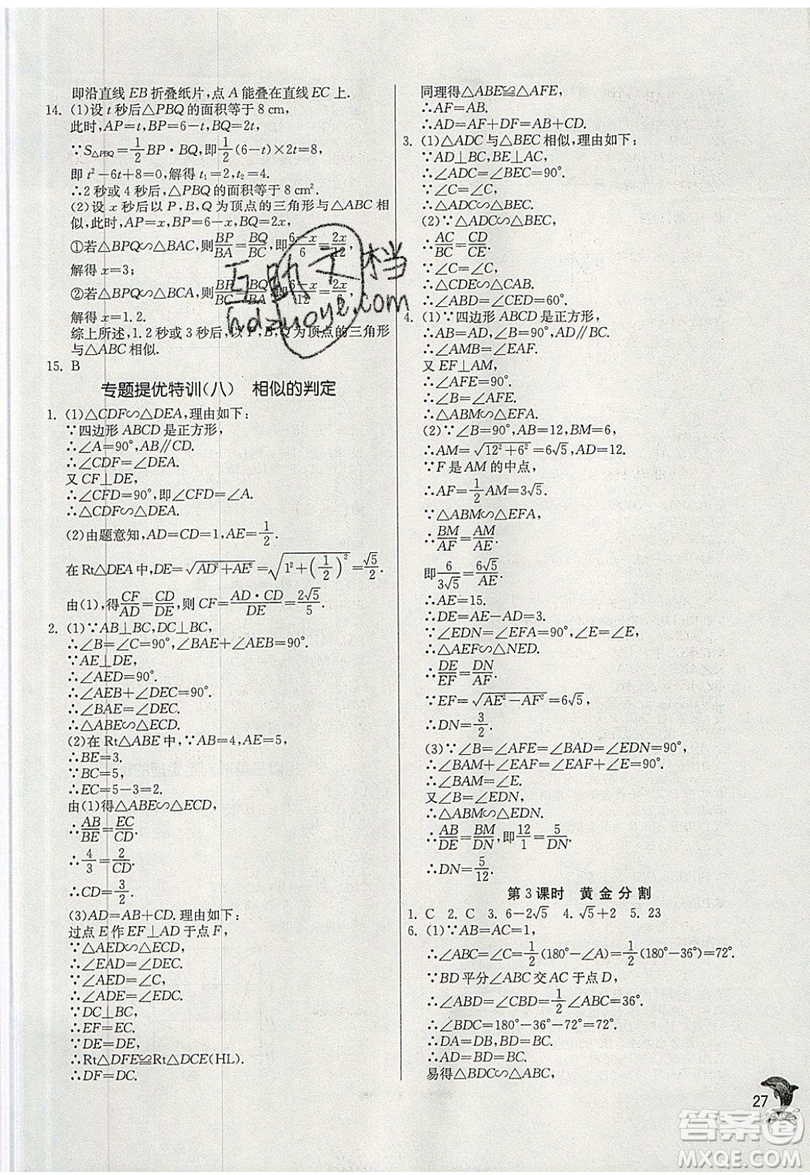 即沿直线 EB 折叠纸片,点 A 能叠在直线 EC 上.
14. (1)设 t 秒后△PBQ 的面积等于 8 cm,
此时,AP=t,BP=6-t,BQ=2t,
∵S△PBQ=1/2 BP·BQ,即1/2(6-t)×2t=8,
即 t²-6t+8=0,解得 t₁=2,t₂=4.
∴2秒或 4 秒后,△PBQ 的面积等于 8 cm².
(2)设 x 秒后以 P、B、Q 为顶点的三角形与△ABC 相
似,此时,AP=x,BP=6-x,BQ=2x,
①若△BPQ∽△BAC,则BP/BA=BQ/BC,即(6-x)/6=2x/12,
解得 x=3;
②若△BPQ∽△BCA,则BP/BC=BQ/BA,即(6-x)/12=2x/6,
解得 x=1.2.
综上所述,1.2 秒或 3 秒后,以 P、B、Q 为顶点的三角形
与△ABC 相似.
15. B
专题提优特训(八) 相似的判定
1. (1)△CDF∽△DEA,理由如下:
∵四边形 ABCD 是正方形,
∴∠A=90°,AB∥CD.
∴∠CDF=∠DEA.
又 CF⊥DE,
∴∠CFD=90°,即∠CFD=∠A.
∴△CDF∽△DEA.
(2)由题意知,AD=CD=1,AE=1/2.
在 Rt△DEA 中,DE=√(AD²+AE²)=√(1²+(1/2)²)=√5/2.
由(1),得CF/AD=CD/DE,则 CF=AD·CD/DE=2√5/5.
2. (1)∵AB⊥BC,DC⊥BC,
∴∠B=∠C=90°,∠BAE+∠AEB=90°.
∵AE⊥DE,
∴∠AED=90°.
∴∠AEB+∠DEC=90°.
∴∠DEC=∠BAE.
∴△ABE∽△ECD.
(2)在 Rt△ABE 中,∵AB=4,AE=5,
∴BE=3.
∵BC=5,
∴EC=5-3=2.
由(1)得△ABE∽△ECD,
∴AB/BE=EC/CD.
∴4/3=2/CD.
∴CD=3/2.
(3)AD=AB+CD.理由如下:
过点 E 作 EF⊥AD 于点 F,
∵△AED∽△ECD,
∴∠EAD=∠DEC.
∴∠ADE=∠EDC.
∵DC⊥BC,
∴EF=EC.
∵DE=DE,
∴Rt△DFE≌Rt△DCE(HL).
∴DF=DC.
同理得△ABE≌△AFE,
∴AF=AB.
∴AD=AF+DF=AB+CD.
3. (1)△ADC 与△BEC 相似,理由如下:
∵AD⊥BC,BE⊥AC,
∴∠ADC=∠BEC=90°.
∵∠C=∠C,
∴△ADC∽△BEC.
(2)∵△ADC∽△BEC,
∴AC/BC=CD/CE.
∵∠C=∠C,
∴△CDE∽△CAB.
∴∠ABD=∠CED=60°.
4. (1)∵四边形 ABCD 是正方形,
∴AB=AD,∠B=90°,AD∥BC.
∴∠AMB=∠EAF.
又 EF⊥AM,
∴∠AFE=90°.
∴∠B=∠AFE.
∴△ABM∽△EFA.
(2)∵∠B=90°,AB=12,BM=6,
∴AM=√(12²+6²)=6√5,AD=12.
∵F 是 AM 的中点,
∴AF=1/2AM=3√5.
∵△ABM∽△EFA,
∴BM/AF=AM/AE.
即6/3√5=6√5/AE.
∴AE=15.
∴DE=AE-AD=3.
∵∠EDN=∠EFA=90°,∠E=∠E,
∴△AEF∽△NED.
∴DE/EF=DN/AF.
∵EF=√(AE²-AF²)=6√5,
∴DN=3/2.
(3)∵∠B=∠AFE=∠BAD=∠EDN=90°,
∴∠BAM+∠EAF=∠E+∠EAF=90°.
∴∠BAM=∠E.
又∠B=∠EDN,
∴△ABM∽△EDN.
∴AB/DE=BM/DN,即12/1=5/DN.
∴DN=5/12.
第 3 课时 黄金分割
1. C 2. C 3. 6-2√5 4. √5+2 5. 23
6. (1)∵AB=AC=1,
∴∠ABC=∠C=1/2(180°-∠A)=1/2(180°-36°)=72°.
∵BD 平分∠ABC 交 AC 于点 D,
∴∠ABD=∠CBD=1/2∠ABC=36°.
∴∠BDC=180°-36°-72°=72°.
∴DA=DB,BD=BC.
∴AD=BD=BC.
易得△BDC∽△ABC,
27
互助文档
hdzuoye.com
答案圈
MXQE.COM